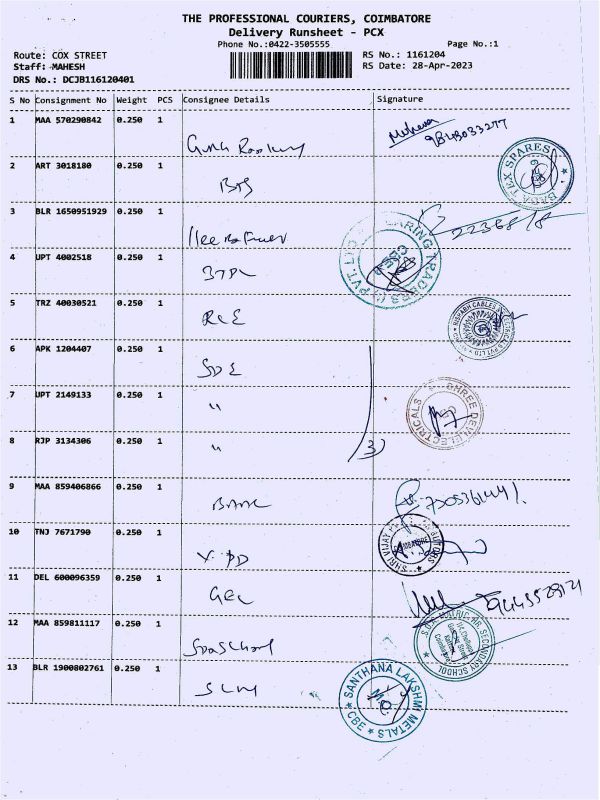 THE PROFESSIONAL COURIERS, COIMBATORE
Delivery Runsheet - PCX
Phone No.:0422-3505555
Page No.:1
Route: COX STREET
RS No.: 1161204
Staff: MAHESH
RS Date: 28-Apr-2023
DRS No.: DCJB116120401
S No Consignment No Weight PCS Consignee Details Signature
1 MAA 570290842 0.250 1
2 ART 3018180 0.250 1
BABA TEX SPARES
3 BLR 1650951929 0.250 1
223681/8
4 UPT 4002518 0.250 1
BEARING TRADERS (I) PVT. LTD
CBE
5 TRZ 40030521 0.250 1
RCE
RISHABH CABLES
6 APK 1204407 0.250 1
SDE
7 UPT 2149133 0.250 1
"
SHREE DEV ELECTRICALS
8 RJP 3134306 0.250 1
"
3
9 MAA 859406866 0.250 1
10 TNJ 7671790 0.250 1
SHRI VIJAY
COIMBATORE
11 DEL 600096359 0.250 1
12 MAA 859811117 0.250 1
MATRIC. HR. SECONDARY SCHOOL
13 BLR 1900802761 0.250 1
SLM
SANTHANA LAKSHMI METALS
CBE